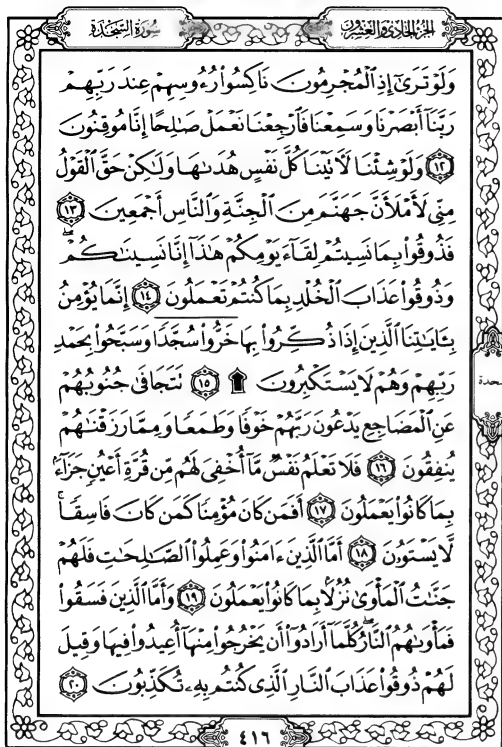 الجزء الحادي والعشرون
سورة السجدة
وَلَوْ تَرَىٰٓ إِذِ ٱلْمُجْرِمُونَ نَاكِسُوا۟ رُءُوسِهِمْ عِندَ رَبِّهِمْ
رَبَّنَآ أَبْصَرْنَا وَسَمِعْنَا فَٱرْجِعْنَا نَعْمَلْ صَٰلِحًا إِنَّا مُوقِنُونَ
١٢ وَلَوْ شِئْنَا لَءَاتَيْنَا كُلَّ نَفْسٍ هُدَىٰهَا وَلَٰكِنْ حَقَّ ٱلْقَوْلُ
مِنِّى لَأَمْلَأَنَّ جَهَنَّمَ مِنَ ٱلْجِنَّةِ وَٱلنَّاسِ أَجْمَعِينَ ١٣
فَذُوقُوا۟ بِمَا نَسِيتُمْ لِقَآءَ يَوْمِكُمْ هَٰذَآ إِنَّا نَسِينَٰكُمْ ۖ
وَذُوقُوا۟ عَذَابَ ٱلْخُلْدِ بِمَا كُنتُمْ تَعْمَلُونَ ١٤ إِنَّمَا يُؤْمِنُ
بِـَٔايَٰتِنَا ٱلَّذِينَ إِذَا ذُكِّرُوا۟ بِهَا خَرُّوا۟ سُجَّدًا وَسَبَّحُوا۟ بِحَمْدِ
رَبِّهِمْ وَهُمْ لَا يَسْتَكْبِرُونَ ۩ ١٥ تَتَجَافَىٰ جُنُوبُهُمْ
عَنِ ٱلْمَضَاجِعِ يَدْعُونَ رَبَّهُمْ خَوْفًا وَطَمَعًا وَمِمَّا رَزَقْنَٰهُمْ
يُنفِقُونَ ١٦ فَلَا تَعْلَمُ نَفْسٌ مَّآ أُخْفِىَ لَهُم مِّن قُرَّةِ أَعْيُنٍ جَزَآءًۢ
بِمَا كَانُوا۟ يَعْمَلُونَ ١٧ أَفَمَن كَانَ مُؤْمِنًا كَمَن كَانَ فَاسِقًا ۚ
لَّا يَسْتَوُۥنَ ١٨ أَمَّا ٱلَّذِينَ ءَامَنُوا۟ وَعَمِلُوا۟ ٱلصَّٰلِحَٰتِ فَلَهُمْ
جَنَّٰتُ ٱلْمَأْوَىٰ نُزُلًۢا بِمَا كَانُوا۟ يَعْمَلُونَ ١٩ وَأَمَّا ٱلَّذِينَ فَسَقُوا۟
فَمَأْوَىٰهُمُ ٱلنَّارُ ۖ كُلَّمَآ أَرَادُوٓا۟ أَن يَخْرُجُوا۟ مِنْهَآ أُعِيدُوا۟ فِيهَا وَقِيلَ
لَهُمْ ذُوقُوا۟ عَذَابَ ٱلنَّارِ ٱلَّذِى كُنتُم بِهِۦ تُكَذِّبُونَ ٢٠
٤١٦